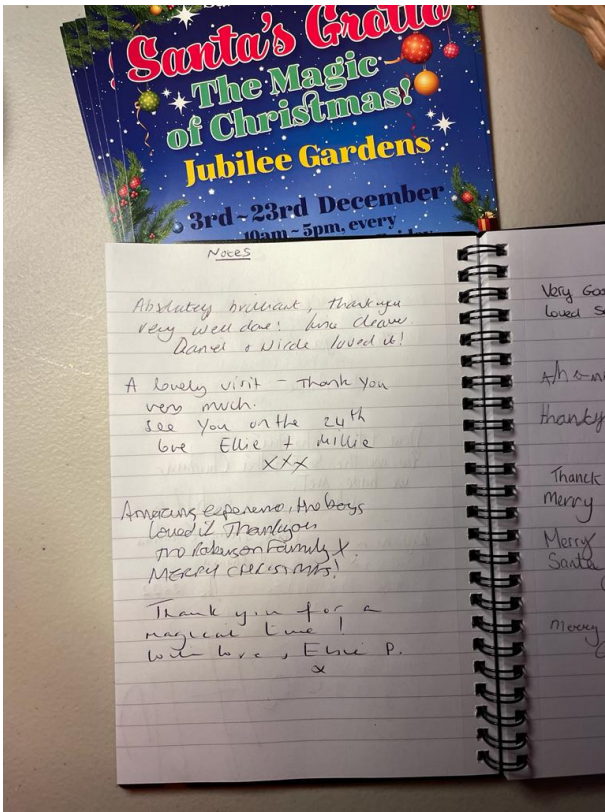 Santa's Grotto
The Magic
of Christmas!
Jubilee Gardens
3rd - 23rd December
10am - 5pm, every
Notes
Absolutely brilliant, thank you
very well done!
Daniel + Nicole loved it!
A lovely visit - Thank You
very much.
See You on the 24th
love Ellie + Millie
XXX
Amazing experience, the boys
loved it Thankyou
The Robinson Family X.
MERRY CHRISTMAS!
Thank you for a
magical time!
with love, Elsie P.
x
Very Goo
loved S
thanky
Thanck
merry
Merry
Santa
merry